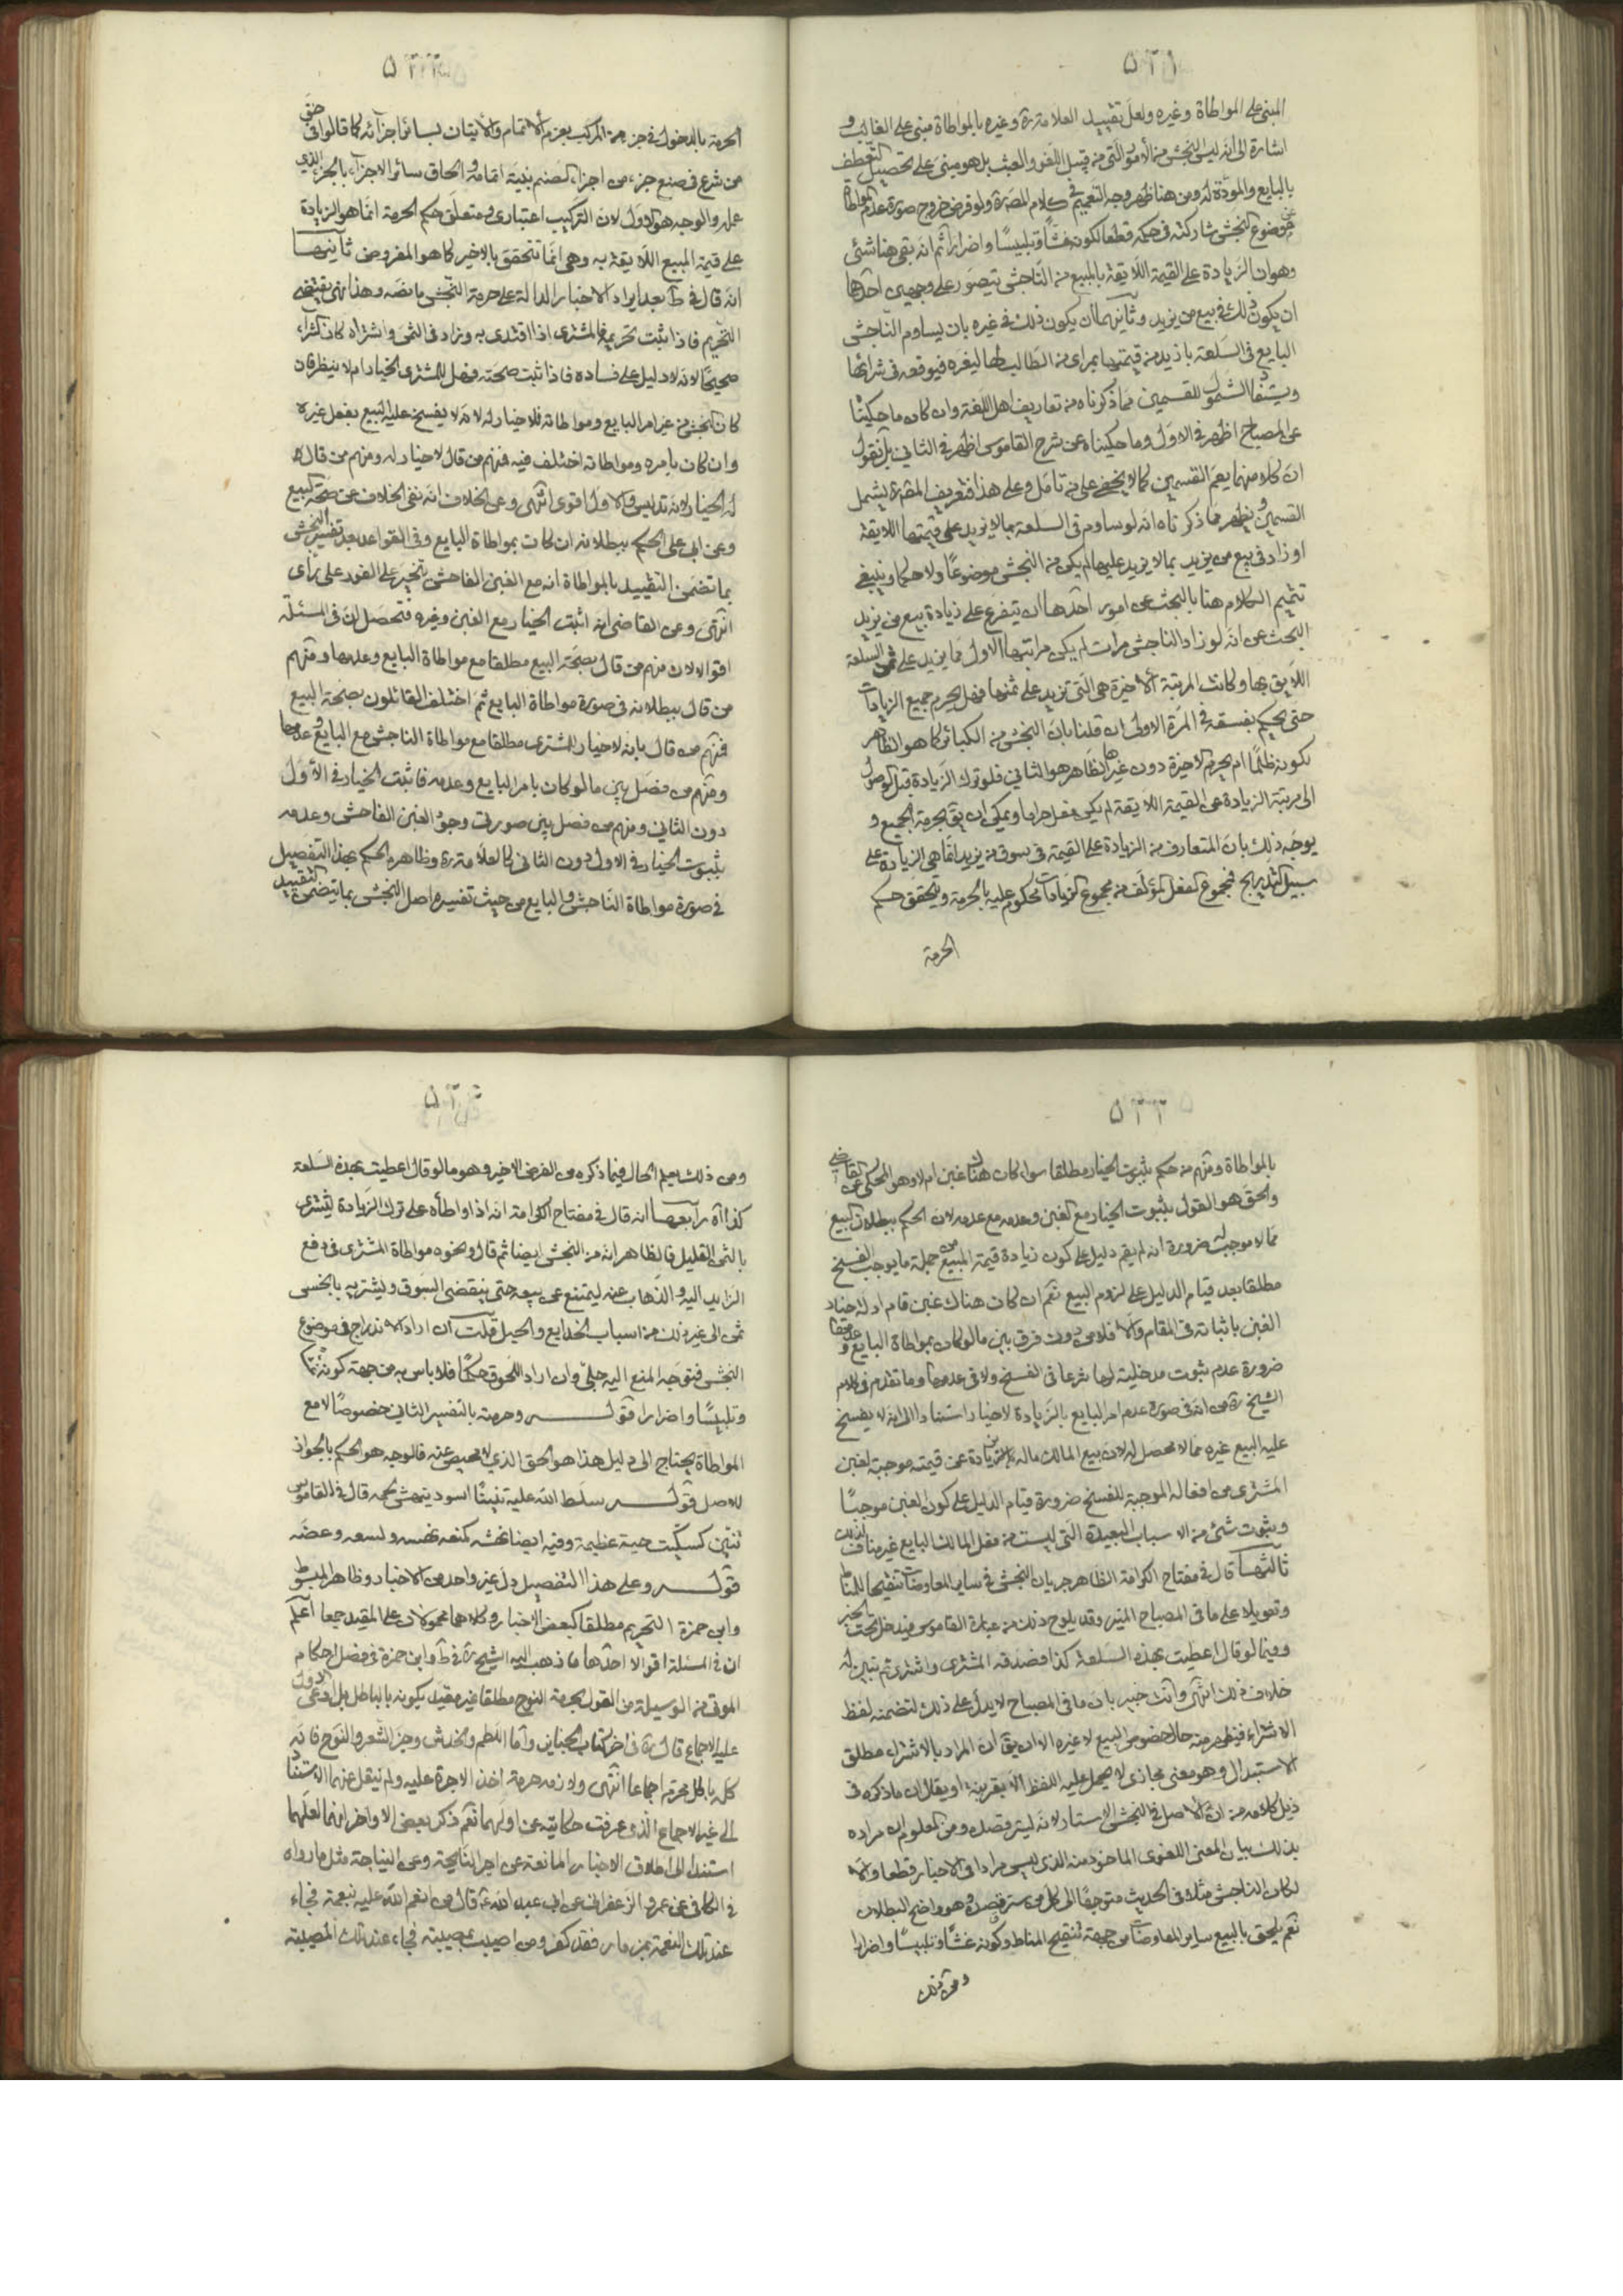 ٥٢١
المبنى على المواطاة وغيره ولعل تقييد العلامة ره وغيره بالمواطاة مبنى على الغالب و
اشارة الى انه ليس النجش من الأمور التى من قبيل اللغو والعبث بل هو مبنى على تحصيل التعطف
بالبايع والمودة له ومن هنا ظهر وجه التعميم فى كلام المصره ولو فرض خروج صورة عدم المواطاة
عن موضوع النجش شاركته فى حكمه قطعا لكونه غشا وتلبيسًا واضرارا ثم انه بقى هنا شئ
وهو ان الزيادة على القيمة اللايقة بالمبيع من الناجش يتصور على وجهين احدهما
ان يكون ذلك فى بيع من يزيد وثانيهما ان يكون ذلك فى غيره بان يساوم الناجش
البايع فى السلعة بازيد من قيمتها بمرأى من الطالب لها ليغره فيوقعه فى شرائها
ويستفاد الشمول للقسمين مما ذكرناه من تعاريف اهل اللغة وان كان ما حكيناه
عن المصباح اظهر فى الاول وما حكيناه عن شرح القاموس اظهر فى الثانى بل نقول
ان كلا منهما يعم القسمين كما لا يخفى على من تامل وعلى هذا فتعريف المصره يشمل
القسمين ويظهر مما ذكرناه انه لو ساوم فى السلعة بما لا يزيد على قيمتها اللايقة
او زاد فى بيع من يزيد بما لا يزيد عليها لم يكن من النجش موضوعًا ولا حكما وينبغى
تتميم الكلام هنا بالبحث عن امور احدها ان يتفرع على زيادة بيع من يزيد
البحث عن انه لو زاد الناجش مرات لم يكن مراتبها الاول مما يزيد على ثمن السلعة
اللايق بها وكانت المرتبة الأخيرة هى التى تزيد على ثمنها فهل يحرم جميع الزيادات
حتى يحكم بفسقه فى المرة الاولى ان قلنا بان النجش من الكبائر كما هو الظاهر
لكونه ظلمًا ام يحرم الاخيرة دون غيرها الظاهر هو الثانى فلو ترك الزيادة قبل الوصول
الى مرتبة الزيادة عن القيمة اللايقة لم يكن فعل حراما ويمكن ان يق بحرمة الجميع و
يوجه ذلك بان المتعارف من الزيادة على القيمة فى سوق من يزيد انما هى الزيادة على
سبيل التدريج فمجموع الفعل المؤلف من مجموع الزيادات محكوم عليه بالحرمة ويتحقق حكم
الحرمة
٥٢٢
الحرمة بالدخول فى جزء من المركب بعزم الاتمام والاتيان بسائر اجزائه كما قالوا فى حق
من شرع فى صنع جزء من اجزاء الصنم بنية اتمامه والحاق سائر الاجزاء بالجزء الذى
عمله والوجه هو الاول لان التركيب اعتبارى ومتعلق حكم الحرمة انما هو الزيادة
على قيمة المبيع اللايقة به وهى انما تتحقق بالاخير كما هو المفروض ثانيها
انه قال فى ط بعد ايراد الاخبار الدالة على حرمة النجش ما نصه وهذا نهى يقتضى
التحريم فاذا ثبت تحريمه فالمشترى اذا اقتدى به وزاد فى الثمن واشتراه كان الشراء
صحيحًا لانه لا دليل على فساده فاذا ثبت صحته فهل للمشترى الخيار ام لا ينظر فان
كان النجش من غير امر البايع ومواطاته فلا خيار له لانه لا يفسخ عليه البيع بفعل غيره
وان كان بامره ومواطاته اختلف فيه فمنهم من قال لا خيار له ومنهم من قال
له الخيار لانه تدليس والاول اقوى انتهى وعن الخلاف انه نفى الخلاف عن صحة البيع
وعن ابى على الحكم ببطلانه ان كان بمواطاة البايع وفى القواعد بعد تفسير النجش
بما تضمن التقييد بالمواطاة انه مع الغبن الفاحش يتخير على الفور على رأى
انتهى وعن القاضى انه اثبت الخيار مع الغبن وغيره فتحصل ان فى المسئلة
اقوالا لان منهم من قال بصحة البيع مطلقا مع مواطاة البايع وعدمها ومنهم
من قال ببطلانه فى صورة مواطاة البايع ثم اختلف القائلون بصحة البيع
فمنهم من قال بانه لا خيار للمشترى مطلقا مع مواطاة الناجش مع البايع وعدمها
ومنهم من فصل بين ما لو كان بامر البايع وعدمه فاثبت الخيار فى الأول
دون الثانى ومنهم من فصل بين صورتى وجود الغبن الفاحش وعدمه
بثبوت الخيار فى الاول دون الثانى كالعلامة ره وظاهره الحكم بهذا التفصيل
فى صورة مواطاة الناجش والبايع من حيث تفسيره اصل النجش بما يتضمن التقييد
٥٢٣
بالمواطاة ومنهم من حكم بثبوت الخيار مطلقا سواء كان هناك غبن ام لا وهو المحكى عن القاضى
والحق هو القول بثبوت الخيار مع الغبن وعدمه مع عدمه لان الحكم ببطلان البيع
مما لا موجب له ضرورة انه لم يقم دليل على كون زيادة قيمة المبيع من جملة ما يوجب الفسخ
مطلقا بعد قيام الدليل على لزوم البيع نعم ان كان هناك غبن قام ادلة خيار
الغبن باثباته فى المقام والا فلا من دون فرق بين ما لو كان بمواطاة البايع وعدمها
ضرورة عدم ثبوت مدخلية لها شرعا فى الفسخ ولا فى عدمها وما تقدم فى كلام
الشيخ ره من انه فى صورة عدم امر البايع بالزيادة لا خيار استنادا الى انه لا يفسخ
عليه البيع غيره مما لا محصل له لان بيع المالك ماله بالزيادة عن قيمته موجبة لغبن
المشترى من افعاله الموجبة للفسخ ضرورة قيام الدليل على كون الغبن موجبًا
وثبوت شئ من الاسباب البعيدة التى ليست من فعل المالك البايع غير مناف لذلك
ثالثها قال فى مفتاح الكرامة الظاهر جريان النجش فى ساير المعاوضات تنقيحا للمناط
وتعويلا على ما فى المصباح المنير وقد يلوح ذلك من عبارة القاموس فيدخل تحت الخبر
وفيما لو قال اعطيت بهذه السلعة كذا فصدقه المشترى واشترى ثم تبين له
خلاف ذلك انتهى وانت خبير بان ما فى المصباح لا يدل على ذلك لتضمنه لفظ
الاشتراء فيظهر منه حال خصوص البيع لا غيره الا ان يقال ان المراد بالاشتراء مطلق
الاستبدال وهو معنى مجازى لا يحمل عليه اللفظ الا بقرينة او يقال ان ما ذكره فى
ذيل كلامه من ان الاصل فى النجش الاستتار لانه يستر قصده ومن المعلوم ان مراده
بذلك بيان المعنى اللغوى الماخوذ منه الذى ليس مرادا فى الاخبار قطعا والا
لكان الناجش مثلا فى الحديث متوجهًا الى كل من ستر قصده وهو واضح البطلان
نعم يلحق بالبيع ساير المعاوضات من جهة تنقيح المناط وكونه غشا وتلبيسًا واضرارا
ومن ذلك
٥٢٤
ومن ذلك يعلم الحال فيما ذكره من الفرض الاخير وهو ما لو قال اعطيت بهذه السلعة
كذا اه رابعها انه قال فى مفتاح الكرامة انه اذا واطأه على ترك الزيادة ليشترى
بالثمن القليل فالظاهر انه من النجش ايضا ثم قال ونحوه مواطاة المشترى فى دفع
الزايد اليه والذهاب عنه ليمتنع عن بيعه حتى ينقضى السوق ويشتريه بابخس
ثمن الى غير ذلك من اسباب الخدايع والحيل قلت ان اراد الاندراج فى موضوع
النجش فتوجه المنع اليه جلى وان اراد اللحوق حكمًا فلا باس به من جهة كونه غشا
وتلبيسًا واضرارا قوله وحرمته بالتفسير الثانى خصوصًا لا مع
المواطاة يحتاج الى دليل هذا هو الحق الذى لا محيص عنه فالوجه هو الحكم بالجواز
للاصل قوله سلط الله عليه تنينًا اسود ينهش لحمه قال فى القاموس
تنين كسكيت حية عظيمة وفيه ايضا نهشه كمنعه نهسه ولسعه وعضه
قوله وعلى هذا التفصيل دل غير واحد من الاخبار وظاهر المبسوط
وابن حمزة التحريم مطلقا كبعض الاخبار وكلاهما محمولان على المقيد جمعا اعلم
ان فى المسئلة اقوالا احدها ما ذهب اليه الشيخ ره فى ط وابن حمزة فى فصل احكام
الموتى من الوسيلة من القول بحرمة النوح مطلقا غير مقيد بكونه بالباطل بل ادعى الاول
عليه الاجماع قال ره فى اخر كتاب الجنايز واما اللطم والخدش وجز الشعر والنوح فانه
كله باطل محرم اجماعا انتهى ولازمه حرمة اخذ الاجرة عليه ولم ينقل عنهما الاستناد
الى غير الاجماع الذى عرفت حكايته عن اولهما نعم ذكر بعض الاواخر انهما لعلهما
استندا الى اطلاق الاخبار المانعة عن اجر النايحة وعن النياحة مثل ما رواه
فى الكافى عن عمرو الزعفرانى عن ابى عبد الله ع قال من انعم الله عليه بنعمة فجاء
عند تلك النعمة بمزمار فقد كفر ومن اصيب بمصيبة فجاء عند تلك المصيبة